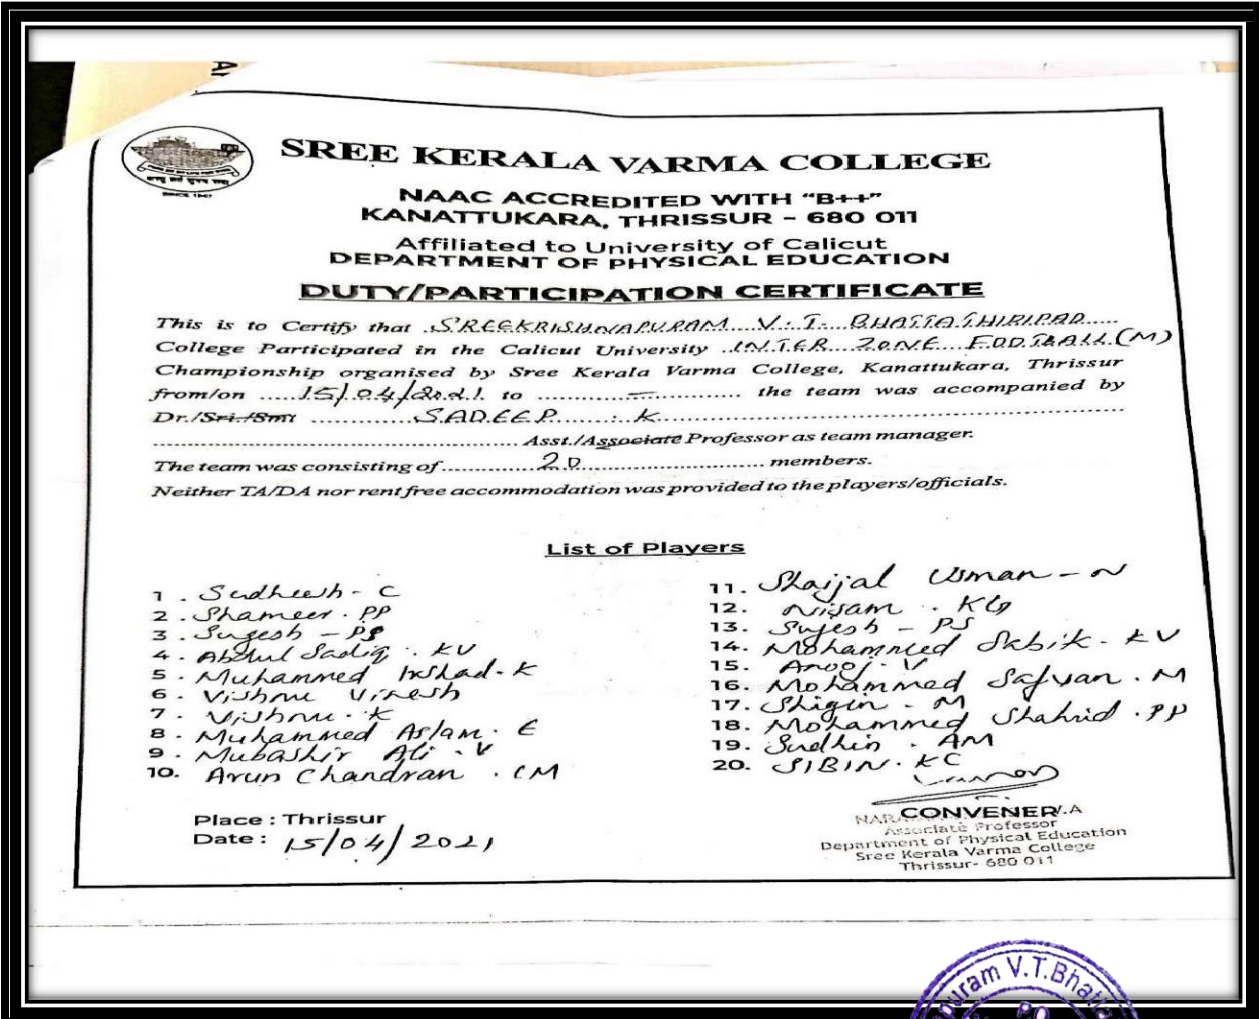 SREE KERALA VARMA COLLEGE
SINCE 1947
NAAC ACCREDITED WITH “B++”
KANATTUKARA, THRISSUR – 680 011
Affiliated to University of Calicut
DEPARTMENT OF PHYSICAL EDUCATION
DUTY/PARTICIPATION CERTIFICATE
This is to Certify that SREEKRISHNAPURAM V.T. BHATTATHIRIPAD
College Participated in the Calicut University INTER ZONE FOOTBALL (M)
Championship organised by Sree Kerala Varma College, Kanattukara, Thrissur
from/on 15/04/2021 to – the team was accompanied by
Dr./Sri./Smt SADEEP . K
Asst./Associate Professor as team manager.
The team was consisting of 20 members.
Neither TA/DA nor rent free accommodation was provided to the players/officials.
List of Players
1 . Sudheesh - C
2 . Shameer . PP
3 . Sugesh – PS
4 . Abdul Sadiq . KV
5 . Muhammed Irshad - K
6 . Vishnu Viresh
7 . Vishnu . K
8 . Muhammed Aslam . E
9 . Mubashir Ali . V
10. Arun Chandran . CM
11. Shaijal Usman – N
12. Nisam .
13. Sujesh – PS
14. Mohammed Sabik . KV
15. Anooj . V
16. Mohammed Safvan . M
17. Shigin . M
18. Mohammed Shahid . PP
19. Sudhin . AM
20. SIBIN . KC
Place : Thrissur
Date : 15/04/2021
CONVENER
Associate Professor
Department of Physical Education
Sree Kerala Varma College
Thrissur- 680 011
puram V.T.Bhatta
P.O